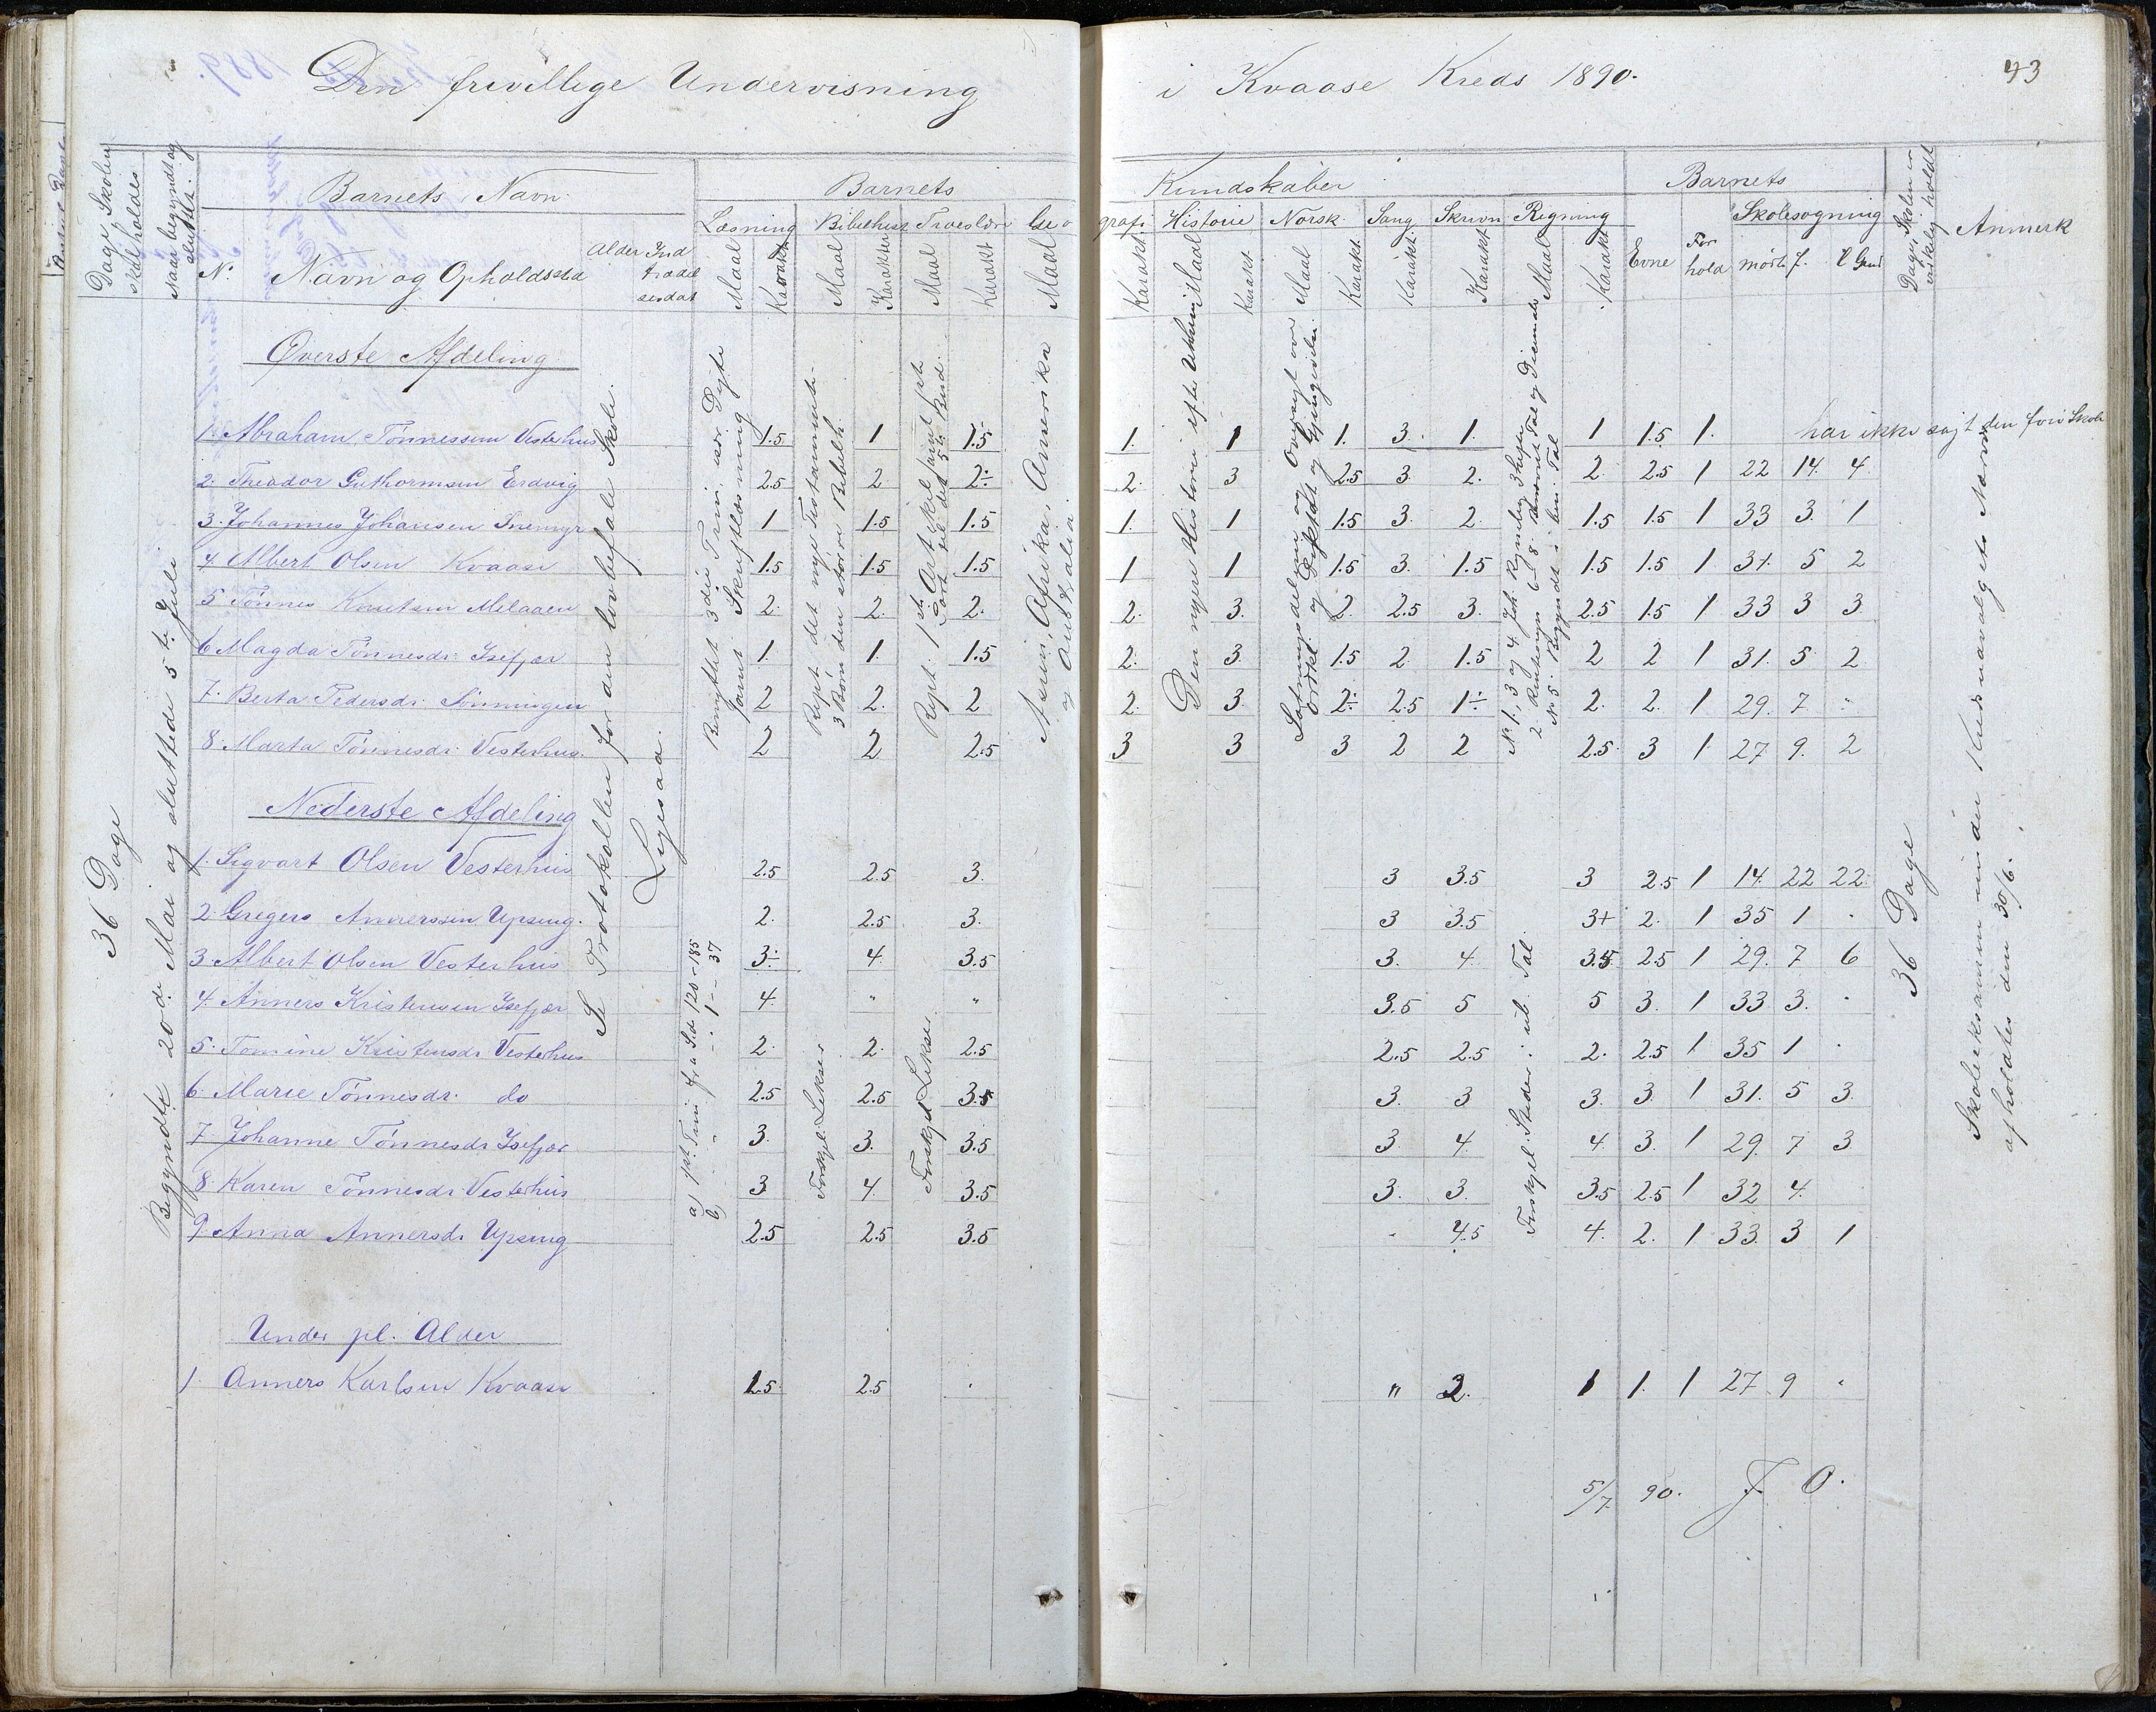 Den frivillige Undervisning i Kvaase Kreds 1890.
43
Dage Skolen skal holdes
Naar begyndt og sluttet.
Barnets Navn
N. Navn og Opholdssted
Alder Indtrædelsesdat
Barnets Kundskaber
Læsning Bibelhist Troeslære Geografi Historie Norsk Sang Skrivn Regning
Maal Karakt Maal Karakter Maal Karakt Maal Karakt Maal Karakt Maal Karakt Karakt Karakt Maal Karakt
Barnets
Evne Forhold
Skolesøgning
mødt f. U Grund
Dage Skolen er virkelig holdt
Anmerk
36 Dage
Begyndte 20de Mai og sluttede 5te Juli
Se Protokollen for den lovbefalte Skole.
Lyesaa.
Øverste Afdeling
Benyttet 3die Trin, især Digte samt Skriftlæsning
Rept det nye Testamente. 3 Børn den større Bibelh.
Asien, Afrika, Amerika og Australia
Den nyere Historie efter
1. Abraham Tønnessen Vesterhus 1.5 1 1.5 1. 1 1. 3. 1. 1 1.5 1. har ikke søgt den forr Skole
2. Theodor Guthormsen Erdvig 2.5 2 2÷ 2. 3 2.5 3. 2. 2. 2.5 1 22 14. 4
3. Johannes Johansen Snemyr 1 1.5 1.5 1. 1 1.5 3. 2. 1.5 1.5 1 33 3. 1
4. Albert Olsen Kvaase 1.5 1.5 1.5 1 1 1.5 3. 1.5 1.5 1.5 1 31. 5 2
5 Tønnes Knutsen Melaaen 2. 2. 2. 2. 3. 2. 2.5 3. 2.5 1.5 1 33 3 3
6 Magda Tønnesdr. Isefjær 1. 1. 1.5 2. 3. 1.5 2 1.5 2 2 1 31. 5 2
7. Berta Pedersdr. Lønningen 2 2. 2 2. 3. 2÷ 2.5 1÷ 2. 2. 1 29. 7 "
8. Marta Tønnesdr. Vesterhus. 2 2 2.5 3 3 3 2 2 2.5 3 1 27 9. 2
Nederste Afdeling
a) pt. Trin fra Sd. 120-185
b) " " " 1 - 37
Forskjl. Lekser
Forskjel Lekser
Forskjel. Steder i ub. Tal.
1. Sigvart Olsen Vesterhus 2.5 2.5 3. 3 3.5 3 2.5 1 14. 22 22
2. Gregers Annerssen Upsing. 2. 2.5 3. 3 3.5 3+ 2. 1 35 1 .
3. Albert Olsen Vesterhus 3÷ 4 3.5 3. 4. 3.5 2.5 1 29. 7 6
4. Anners Kristensen Isefjær 4. " " 3.5 5 5 3. 1 33 3. .
5. Tomine Kristensdr Vesterhus 2. 2. 2.5 2.5 2.5 2. 2.5 1 35 1 .
6. Marie Tønnesdr. do 2.5 2.5 3.5 3. 3 3. 3. 1 31. 5 3.
7. Johanne Tønnesdr Isefjær 3. 3. 3.5 3. 4. 4. 3. 1 29. 7 3.
8. Karen Tønnesdr. Vesterhus 3. 4. 3.5 3. 3. 3.5 2.5 1 32 4.
9. Anna Annersdr. Upsing 2.5 2.5 3.5 . 4.5 4. 2. 1 33. 3 1
36 Dage
Skoleeksamen
afholdtes den 30/6.
Under pl. Alder
1. Anners Karlsen Kvaase 1.5 2.5 . " 2. 1 1. 1 27 9 .
5/7 90. J. O.